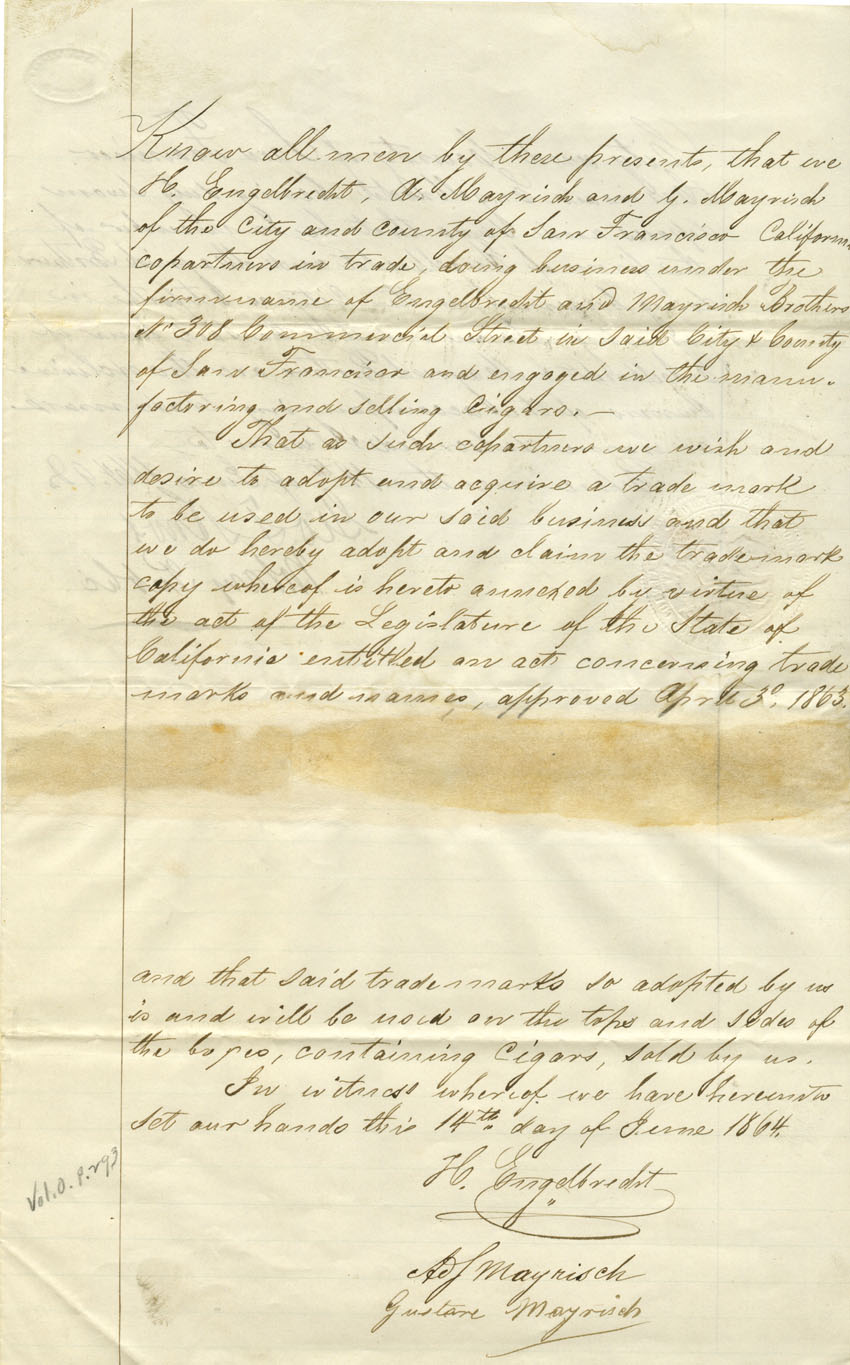 Know all men by these presents, that we
H. Engelbrecht, A. Mayrisch and G. Mayrisch
of the City and County of San Francisco Californ
copartners in trade, doing business under the
firm name of Engelbrecht and Mayrisch Brothers
No 308 Commercial Street in said City & County
of San Francisco and engaged in the manu-
factoring and selling Cigars. —
That as such copartners we wish and
desire to adopt and acquire a trade mark
to be used in our said business and that
we do hereby adopt and claim the trade mark
copy whereof is hereto annexed by virtue of
the act of the Legislature of the State of
California entitled an act concerning trade
marks and names, approved April 3d, 1863.
and that said trade marks so adopted by us
is and will be used on the tops and sides of
the boxes, containing Cigars, sold by us.
In witness whereof we have hereunto
set our hands this 14th day of June 1864.
H. Engelbrecht
Adf Mayrisch
Gustave Mayrisch
Vol. O. P. 293